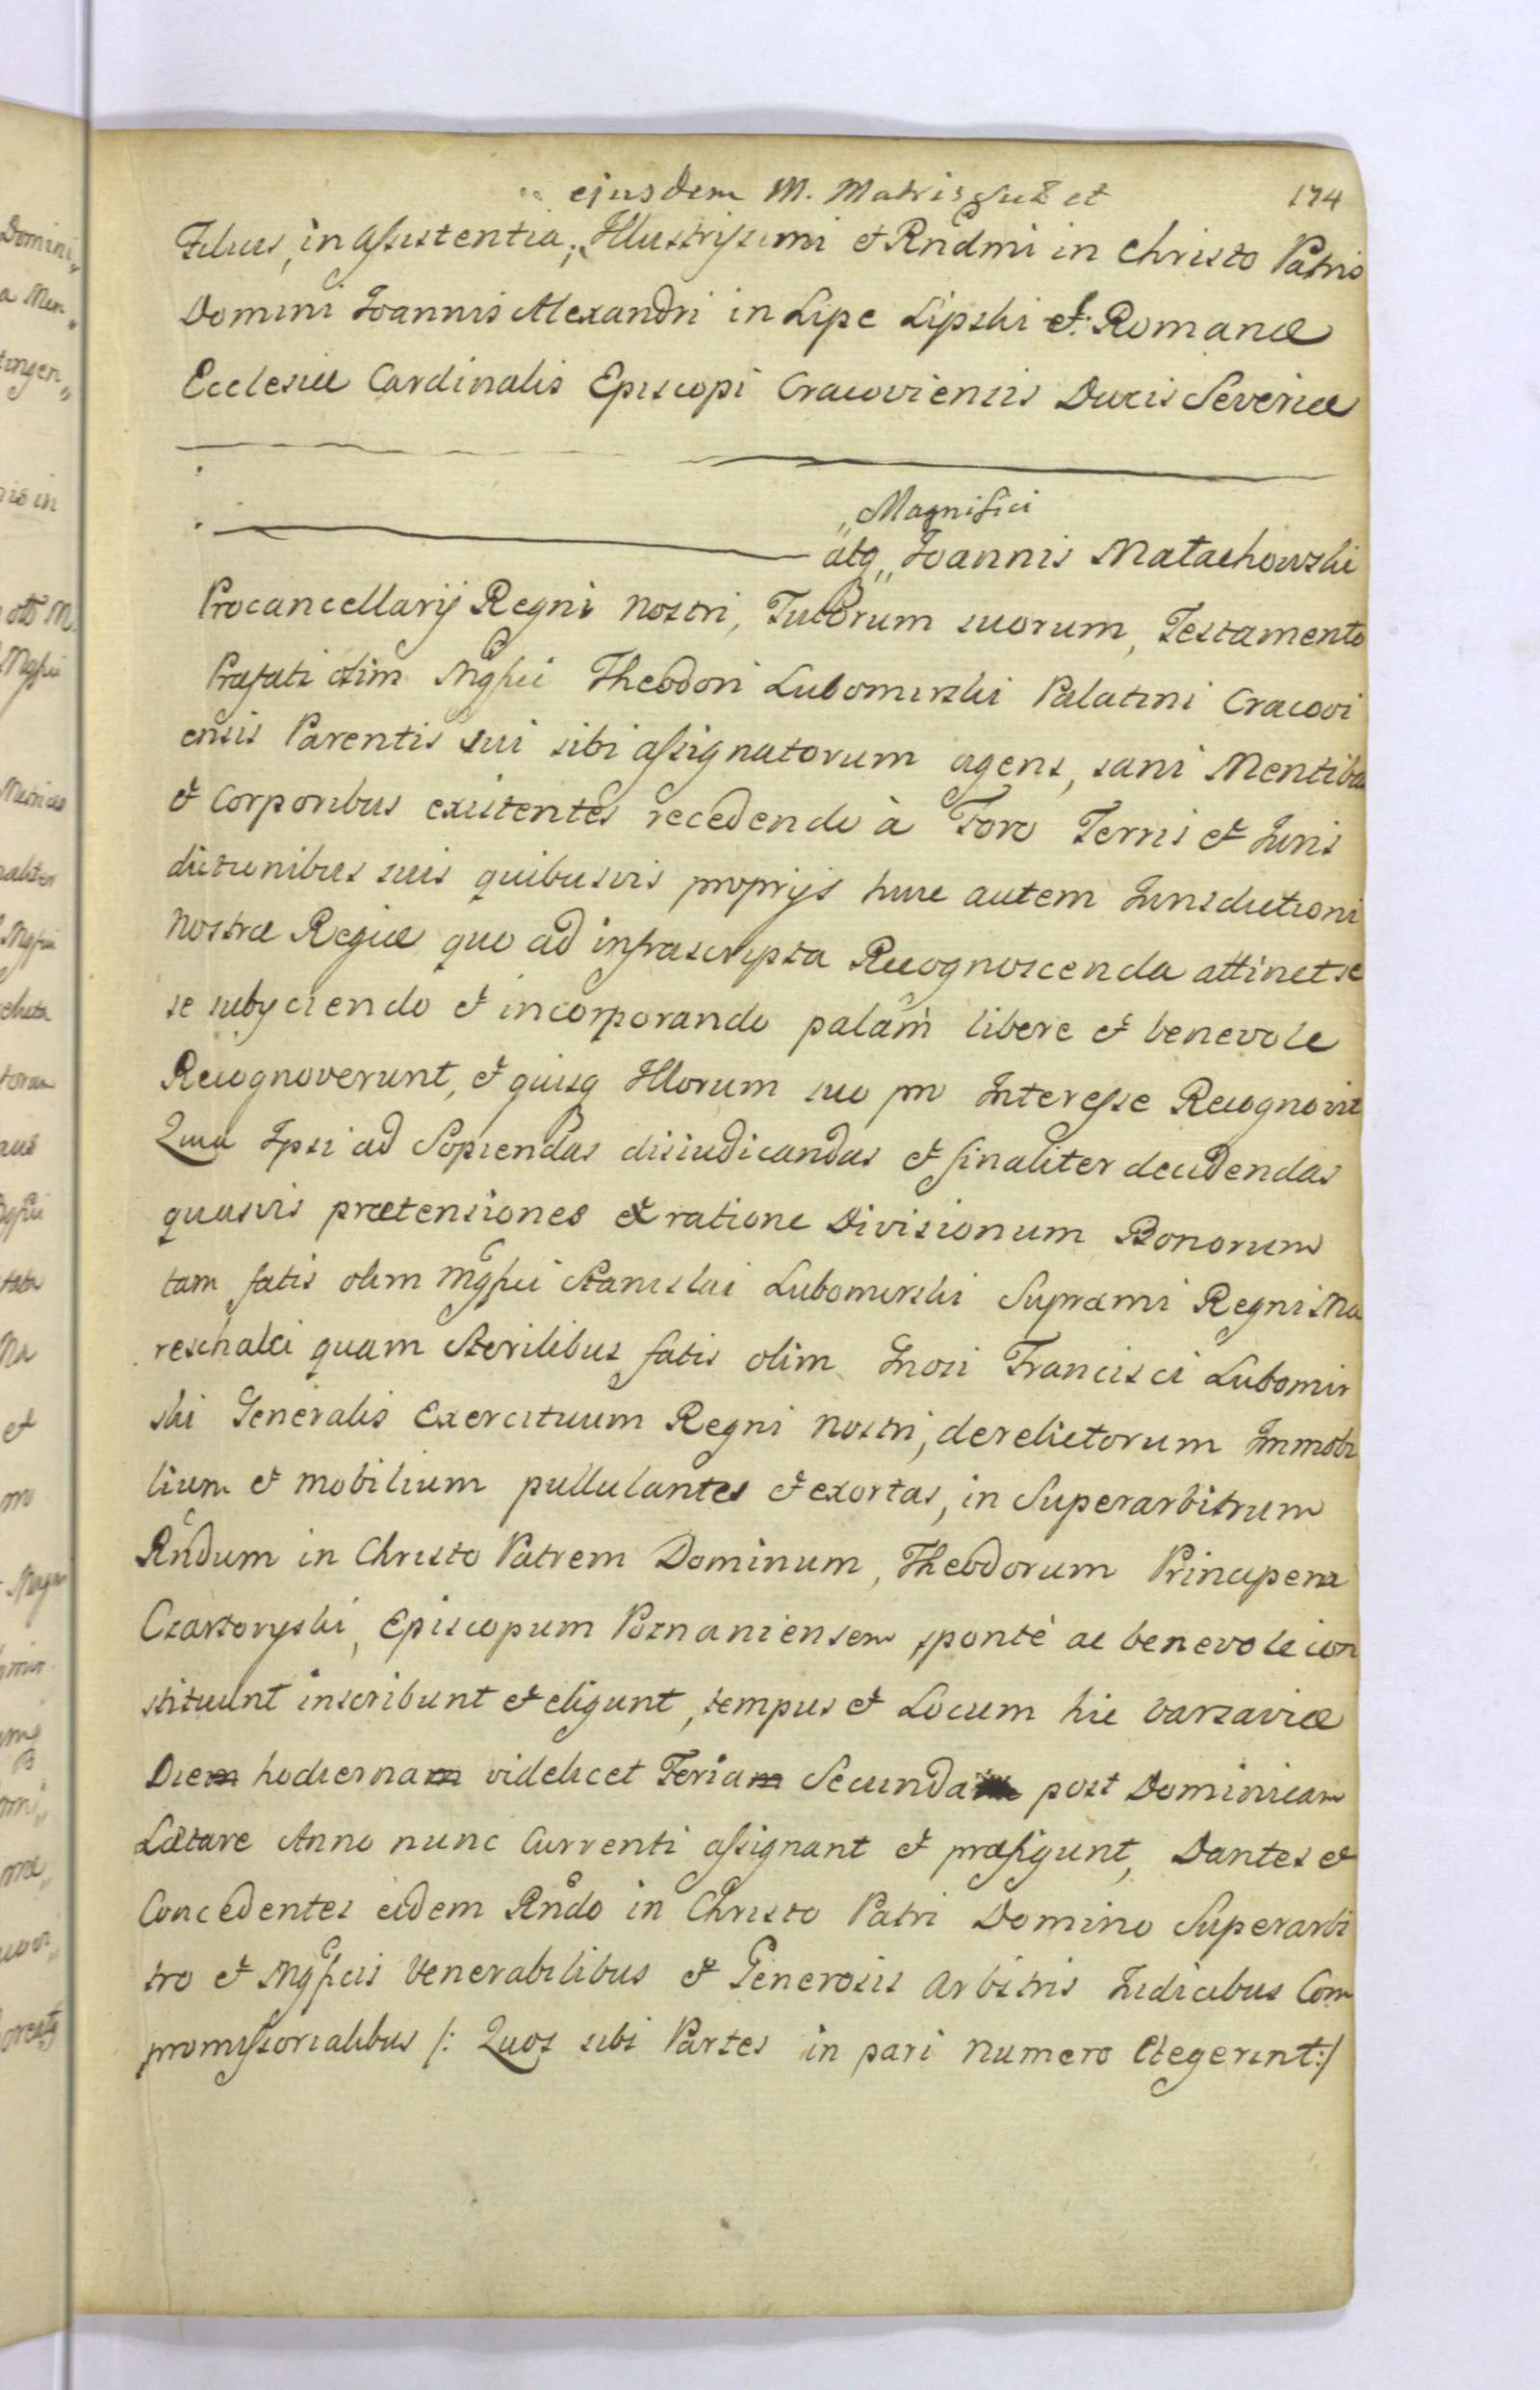 ejusdem M. Matris suæ et 174
Filius, in assistentia, Illustrissimi et Rndmi in Christo Patris
Domini Joannis Alexandri in Lipe Lipski et Romanæ
Ecclesiæ Cardinalis Episcopi Cracoviensis Ducis Severiæ
„Magnifici
atq„ Joannis Małachowski
Procancellarij Regni nostri, Tutorum suorum, Testamento
Præfati olim Mgfici Theodori Lubomirski Palatini Cracovi
ensis Parentis sui sibi assignatorum agens, sani Mentibus
et Corporibus existentes recedendo à Foro Terris et Juris
dictionibus suis quibusvis proprijs huic autem Jurisdictioni
nostræ Regiæ quo ad infrascripta Recognoscenda attinet se
se subjiciendo et incorporando palam libere et benevole
Recognoverunt, et quisq Illorum suo pro Interesse Recognovit
Quia Ipsi ad Sopiendas disiudicandas et finaliter decidendas
quasvis prætensiones ex ratione Divisionum Bonorum
tam fatis olim Mgfici Stanislai Lubomirski Supremi Regni Ma
reschalci quam Sterilibus fatis olim Gnosi Francisci Lubomir
ski Generalis Exercituum Regni nostri, derelictorum Immobi
lium et mobilium pullulantes et exortas, in Superarbitrum
Rndum in Christo Patrem Dominum, Theodorum Principem
Czartoryski, Episcopum Poznaniensem sponte ac benevole con
stituunt inscribunt et eligunt, tempus et Locum hic Varsaviæ
Diem hodiernam videlicet Feriam Secunda post Dominicam
Lætare Anno nunc Currenti assignant et præfigunt, Dantes et
Concedentes eidem Rndo in Christo Patri Domino Superarbi
tro et Mgfcis Venerabilibus et Generosis Arbitris Judicibus Com
promissorialibus /: Quos sibi Partes in pari numero Elegerint:/